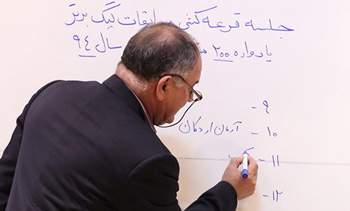 جلسه قرعه کشی مسابقات لیگ برتر
یادواره ۲۰۰ سال ۹۴
۹ -
۱۰ - آرمان اردکان
۱۱ -
۱۲ -